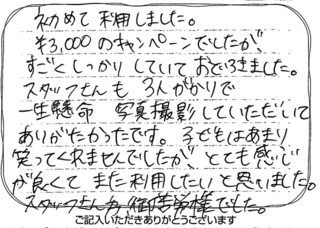 初めて利用しました。
¥3,000のキャンペーンでしたが、
すごくしっかりしていておどろきました。
スタッフさんも3人がかりで
一生懸命 写真撮影していただいて
ありがたかったです。子どもはあまり
笑ってくれませんでしたが、とても感じ
が良くてまた利用したいと思いました。
スタッフさん方御苦労様でした。
ご記入いただきありがとうございます